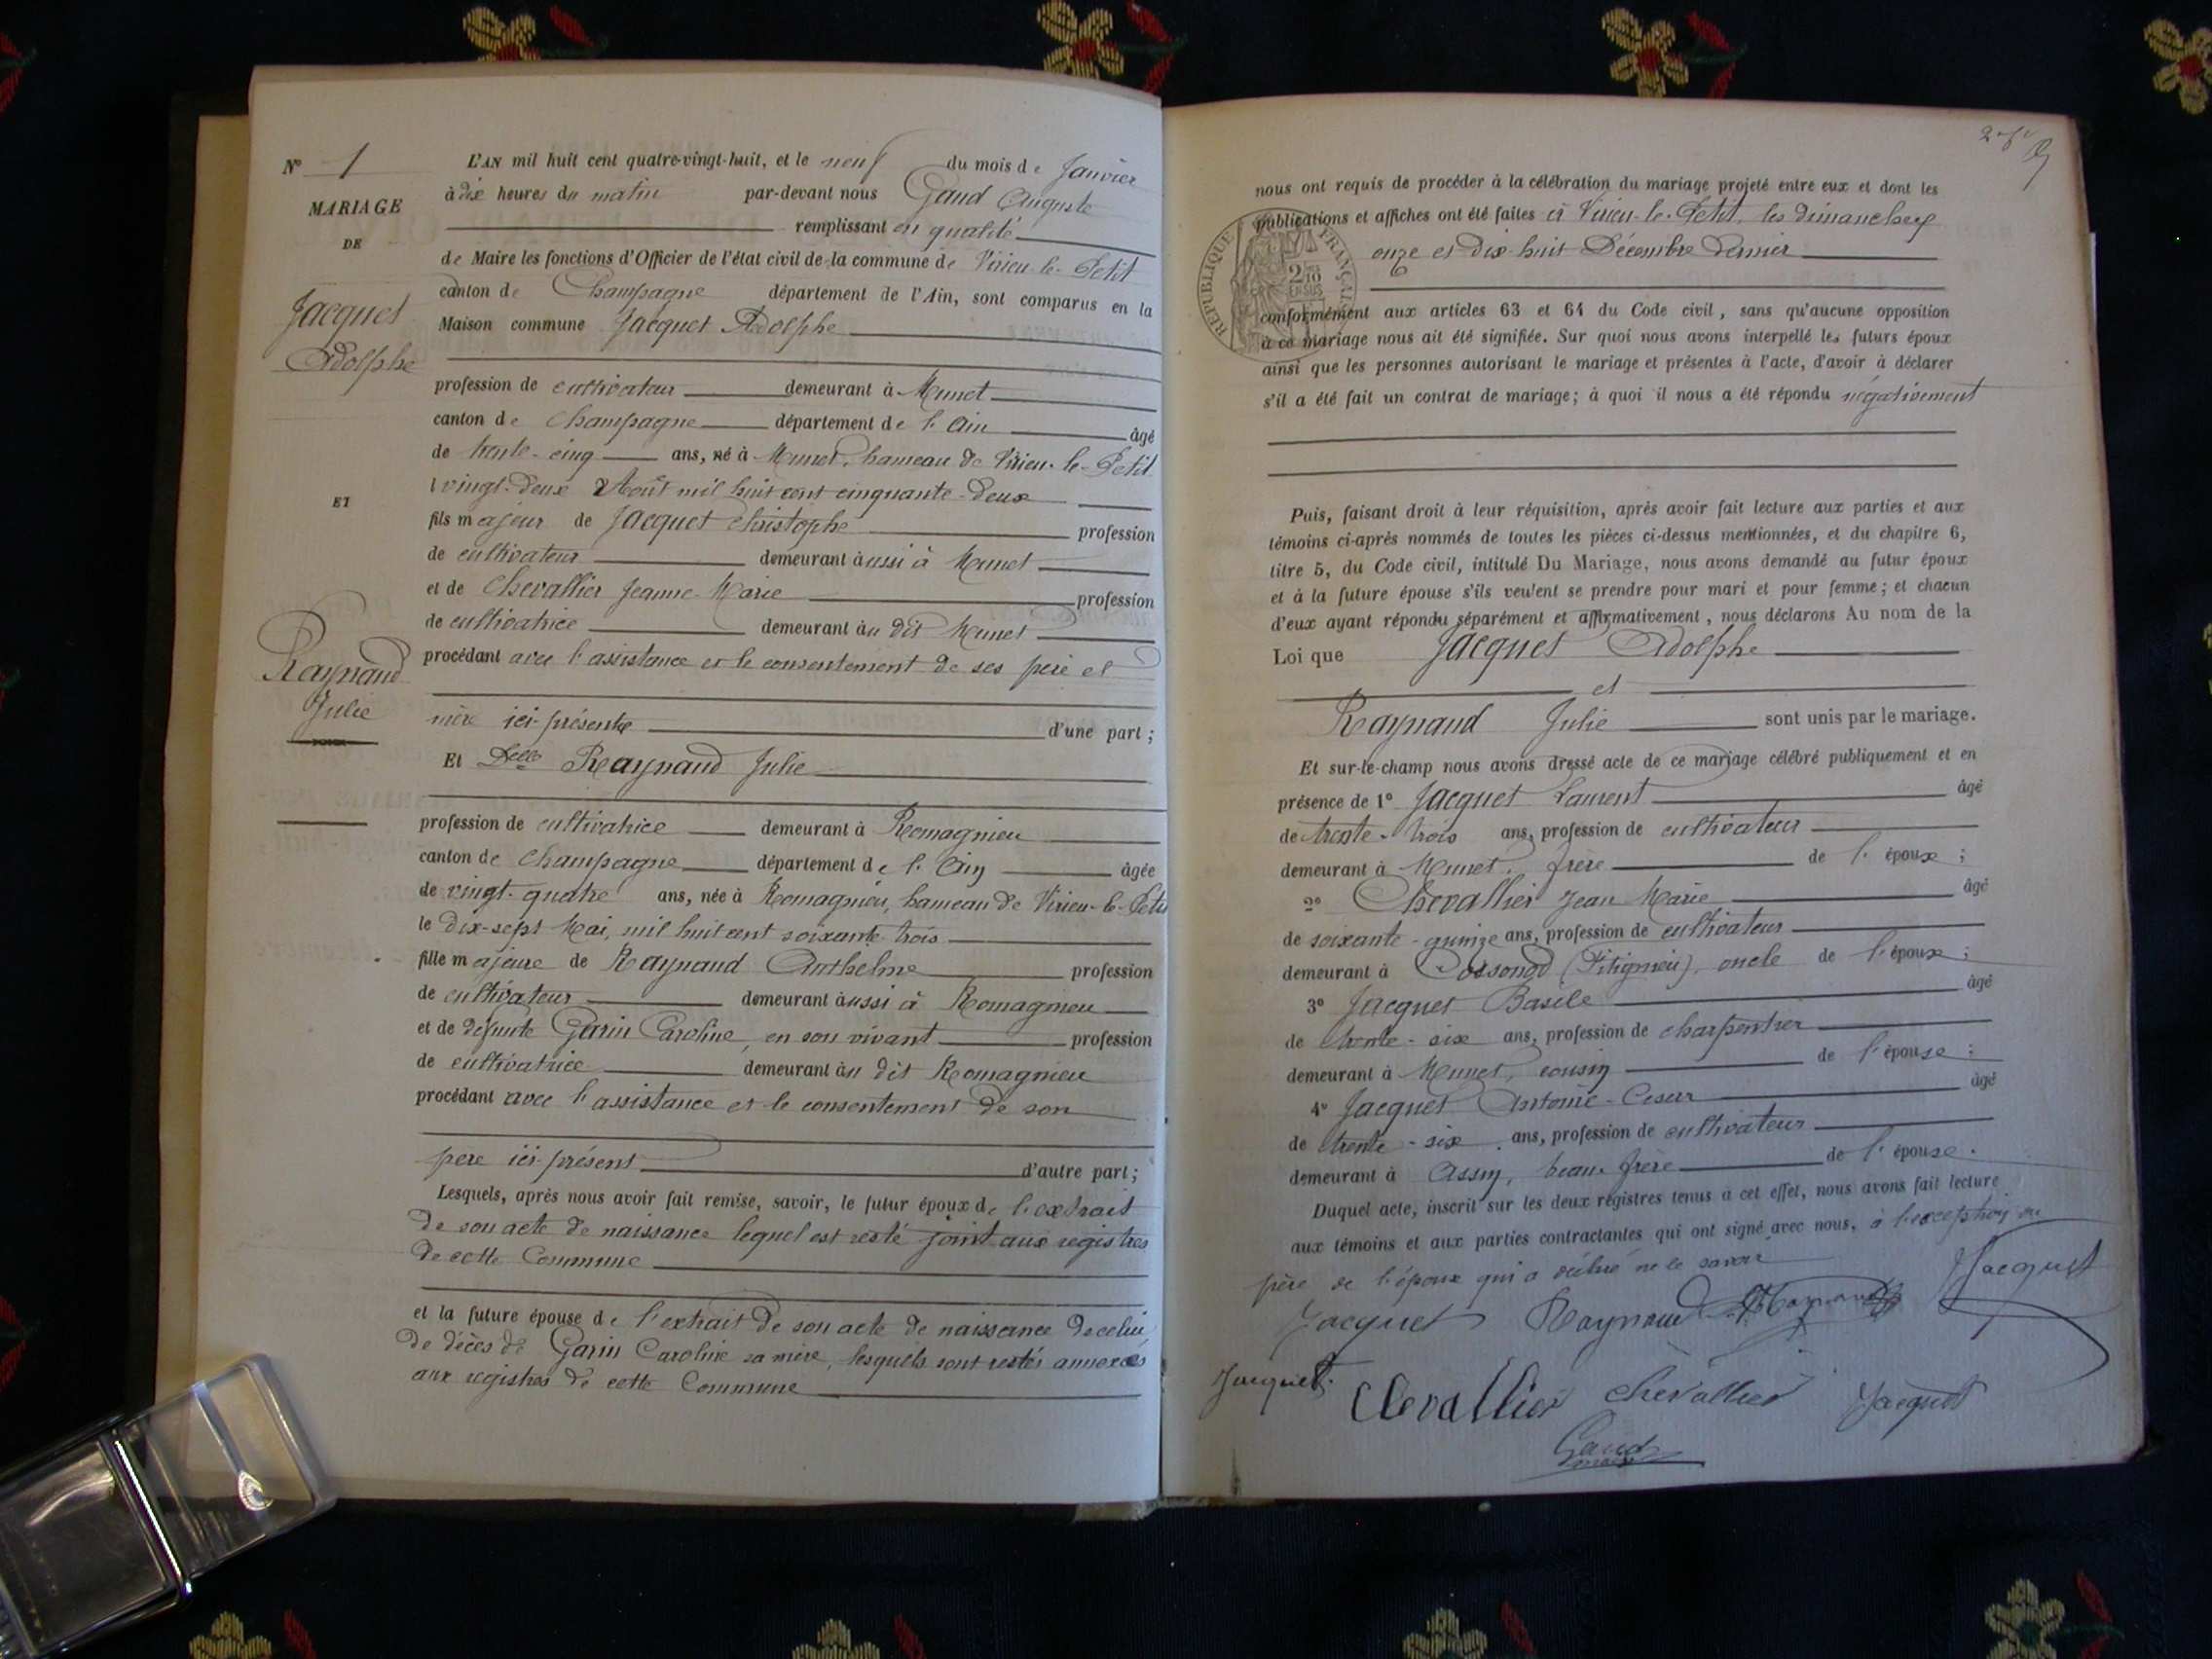 N° 1
MARIAGE
DE
Jacquet
Adolphe
ET
Raynaud
Julie
L'AN mil huit cent quatre-vingt-huit, et le neuf du mois de Janvier
à dix heures du matin par-devant nous Gaud Auguste
remplissant en qualité
de Maire les fonctions d'Officier de l'état civil de la commune de Virieu-le-Petit
canton de Champagne département de l'Ain, sont comparus en la
Maison commune Jacquet Adolphe
profession de cultivateur demeurant à Munet
canton de Champagne département de l'Ain âgé
de trente-cinq ans, né à Munet, hameau de Virieu-le-Petit
vingt-deux Août mil huit cent cinquante-deux
fils majeur de Jacquet Christophe profession
de cultivateur demeurant aussi à Munet
et de Chevallier Jeanne-Marie profession
de cultivatrice demeurant au dit Munet
procédant avec l'assistance et le consentement de ses père et
mère ici-présents d'une part;
Et Delle Raynaud Julie
profession de cultivatrice demeurant à Romagnieu
canton de Champagne département de l'Ain âgée
de vingt-quatre ans, née à Romagnieu, hameau de Virieu-le-Petit
le dix-sept Mai, mil huit cent soixante-trois
fille majeure de Raynaud Anthelme profession
de cultivateur demeurant aussi à Romagnieu
et de défunte Garin Caroline, en son vivant profession
de cultivatrice demeurant au dit Romagnieu
procédant avec l'assistance et le consentement de son
père ici-présent d'autre part;
Lesquels, après nous avoir fait remise, savoir, le futur époux de l'extrait
de son acte de naissance lequel est resté joint aux registres
de cette Commune
et la future épouse de l'extrait de son acte de naissance de celui
de décès de Garin Caroline sa mère, lesquels sont restés annexés
aux registres de cette Commune
nous ont requis de procéder à la célébration du mariage projeté entre eux et dont les
publications et affiches ont été faites à Virieu-le-Petit, les dimanches
onze et dix huit Décembre dernier
RÉPUBLIQUE FRANÇAISE
conformément aux articles 63 et 64 du Code civil, sans qu'aucune opposition
à ce mariage nous ait été signifiée. Sur quoi nous avons interpellé les futurs époux
ainsi que les personnes autorisant le mariage et présentes à l'acte, d'avoir à déclarer
s'il a été fait un contrat de mariage; à quoi il nous a été répondu négativement
Puis, faisant droit à leur réquisition, après avoir fait lecture aux parties et aux
témoins ci-après nommés de toutes les pièces ci-dessus mentionnées, et du chapitre 6,
titre 5, du Code civil, intitulé Du Mariage, nous avons demandé au futur époux
et à la future épouse s'ils veulent se prendre pour mari et pour femme; et chacun
d'eux ayant répondu séparément et affirmativement, nous déclarons Au nom de la
Loi que Jacquet Adolphe
et
Raynaud Julie sont unis par le mariage.
Et sur-le-champ nous avons dressé acte de ce mariage célébré publiquement et en
présence de 1° Jacquet Laurent âgé
de trente-trois ans, profession de cultivateur
demeurant à Munet, frère de l'époux;
2° Chevallier Jean Marie âgé
de soixante-quinze ans, profession de cultivateur
demeurant à Sossonod (Fitignieu), oncle de l'époux;
3° Jacquet Basile âgé
de trente-six ans, profession de charpentier
demeurant à Munet, cousin de l'épouse;
4° Jacquet Antoine-Cesar âgé
de trente-six ans, profession de cultivateur
demeurant à Assin, beau-frère de l'épouse.
Duquel acte, inscrit sur les deux registres tenus à cet effet, nous avons fait lecture
aux témoins et aux parties contractantes qui ont signé avec nous, à l'exception du
père de l'époux qui a déclaré ne le savoir
Jacquet
Jacquet Raynaud
Jacquet Chevallier Chevallier Jacquet
Gaud
maire